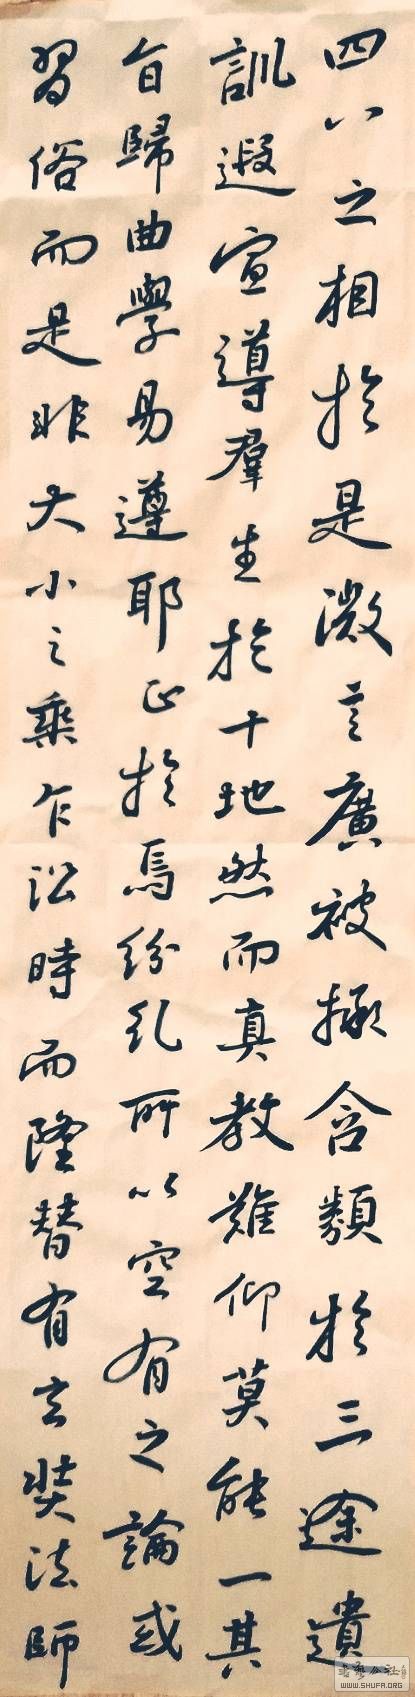 四八之相於是微言廣被拯含類於三途遺
訓遐宣導群生於十地然而真教難仰莫能一其
旨歸曲學易遵耶正於焉紛糺所以空有之論或
習俗而是非大小之乘乍訟時而隆替有玄奘法師
WWW.SHUFA.ORG